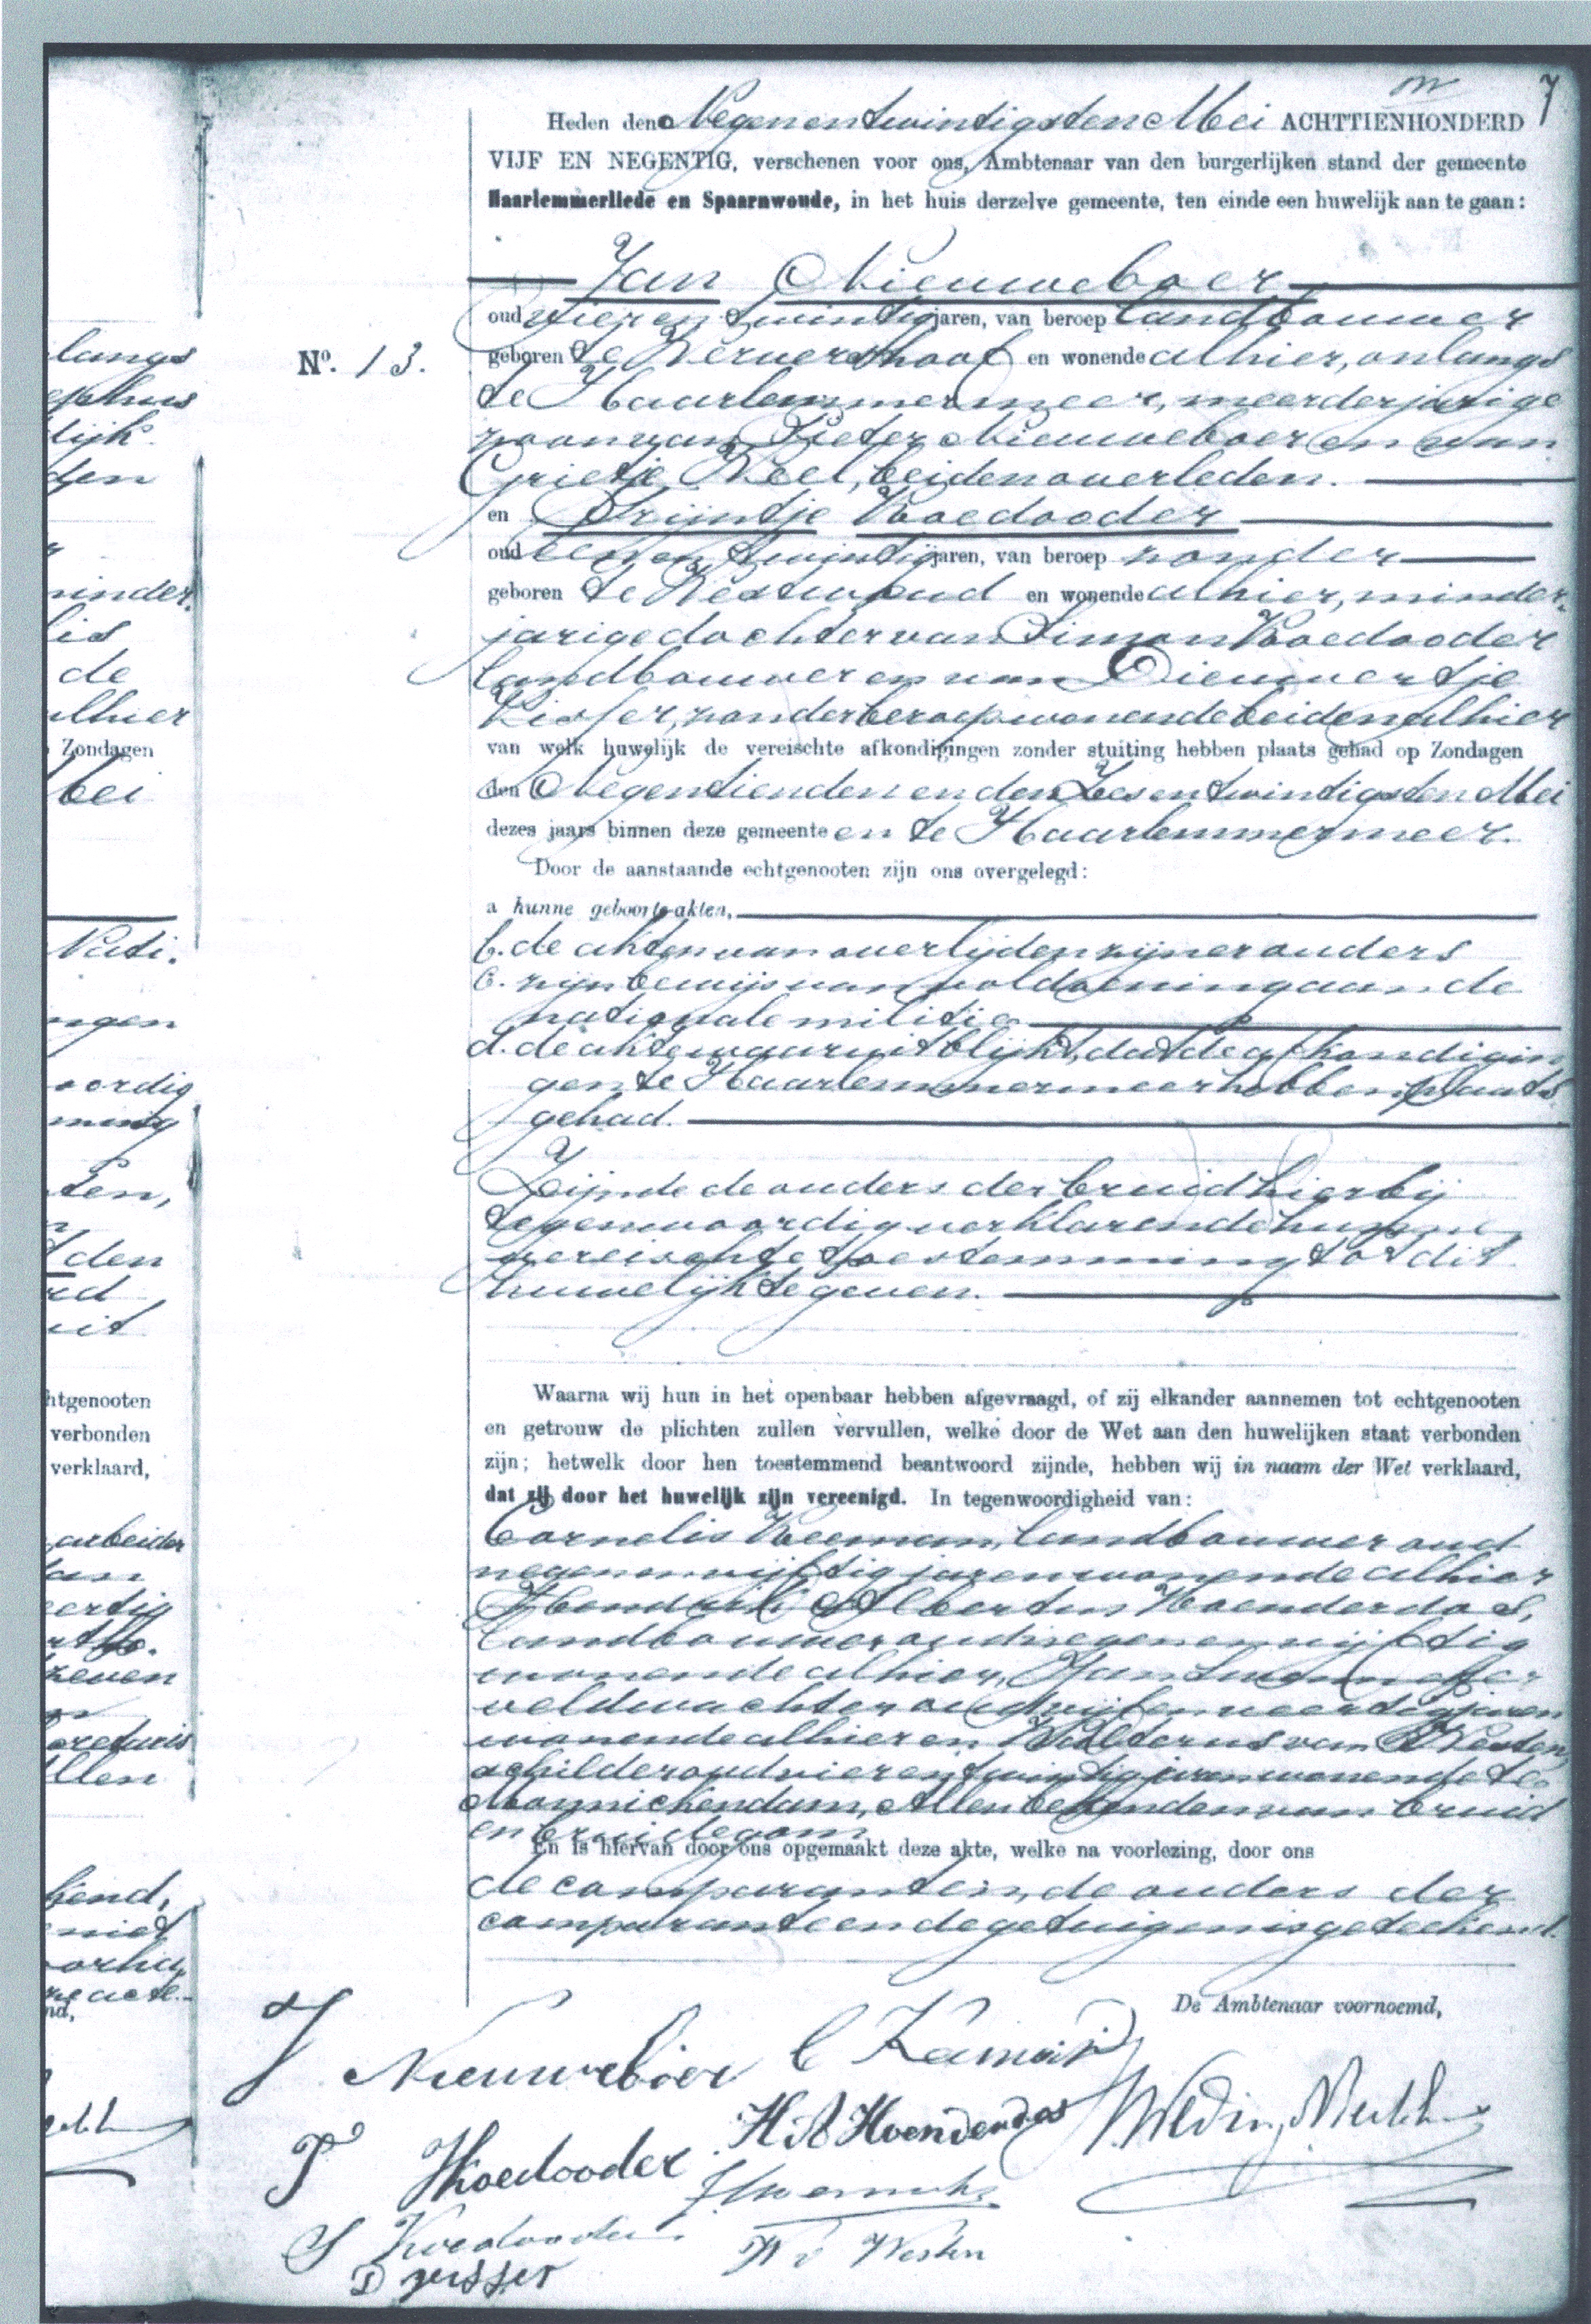 7
Heden den Negenentwintigsten Mei ACHTTIENHONDERD
VIJF EN NEGENTIG, verschenen voor ons, Ambtenaar van den burgerlijken stand der gemeente
Haarlemmerliede en Spaarnwoude, in het huis derzelve gemeente, ten einde een huwelijk aan te gaan:
Jan Nieuweboer
oud vier en twintig jaren, van beroep landbouwer
langs
No. 13.
geboren te Wervershoof en wonende alhier, onlangs
ephus
te Haarlemmermeer, meerderjarige
lijk
zoon van Pieter Nieuweboer en van
den
Grietje Neel, beiden overleden.
en Trijntje Koedooder
oud een en twintig jaren, van beroep zonder
minder,
geboren te Westwoud en wonende alhier, minder,
lis
jarige dochter van Simon Koedooder
de
landbouwer en van Dieuwertje
alhier
Visser, zonder beroep wonende beiden alhier
Zondagen
van welk huwelijk de vereischte afkondigingen zonder stuiting hebben plaats gehad op Zondagen
Mei
den Negentienden en den Zesentwintigsten Mei
dezes jaars binnen deze gemeente en te Haarlemmermeer.
Door de aanstaande echtgenooten zijn ons overgelegd:
a hunne geboorte-akten,
Nati.
b. de akten van overlijden zijner ouders
c. zijn bewijs van voldoening aan de
ngen
nationale militie
d. de akte waaruit blijkt, dat de afkondigin
oordig
gen te Haarlemmermeer hebben plaats
ming
gehad.
ten,
Zijnde de ouders der bruid hierbij
tegenwoordig verklarende hunne
den
vereischte toestemming tot dit
huwelijk te geven.
htgenooten
Waarna wij hun in het openbaar hebben afgevraagd, of zij elkander aannemen tot echtgenooten
verbonden
en getrouw de plichten zullen vervullen, welke door de Wet aan den huwelijken staat verbonden
verklaard,
zijn; hetwelk door hen toestemmend beantwoord zijnde, hebben wij in naam der Wet verklaard,
dat zij door het huwelijk zijn vereenigd. In tegenwoordigheid van:
arbeider
Cornelis Keeman, landbouwer oud
negenenvijftig jaren wonende alhier
eertig
Hendrik Albertus Hoenderdos,
landbouwer oud negenenvijftig
zeven
wonende alhier, Jan
veldwachter oud vijfenveertig jaren
wonende alhier en Walterus van Westen,
llen
schilder oud vierentwintig jaren wonende te
Monnickendam, Allen bekenden van bruid
en bruidegom
En is hiervan door ons opgemaakt deze akte, welke na voorlezing, door ons
kend,
de comparanten, de ouders der
niet
comparante en de getuigen is geteekend.
acte.
De Ambtenaar voornoemd,
J Nieuweboer C Keeman
T Koedooder H A Hoenderdos
S Koedooder W v Westen
D visser